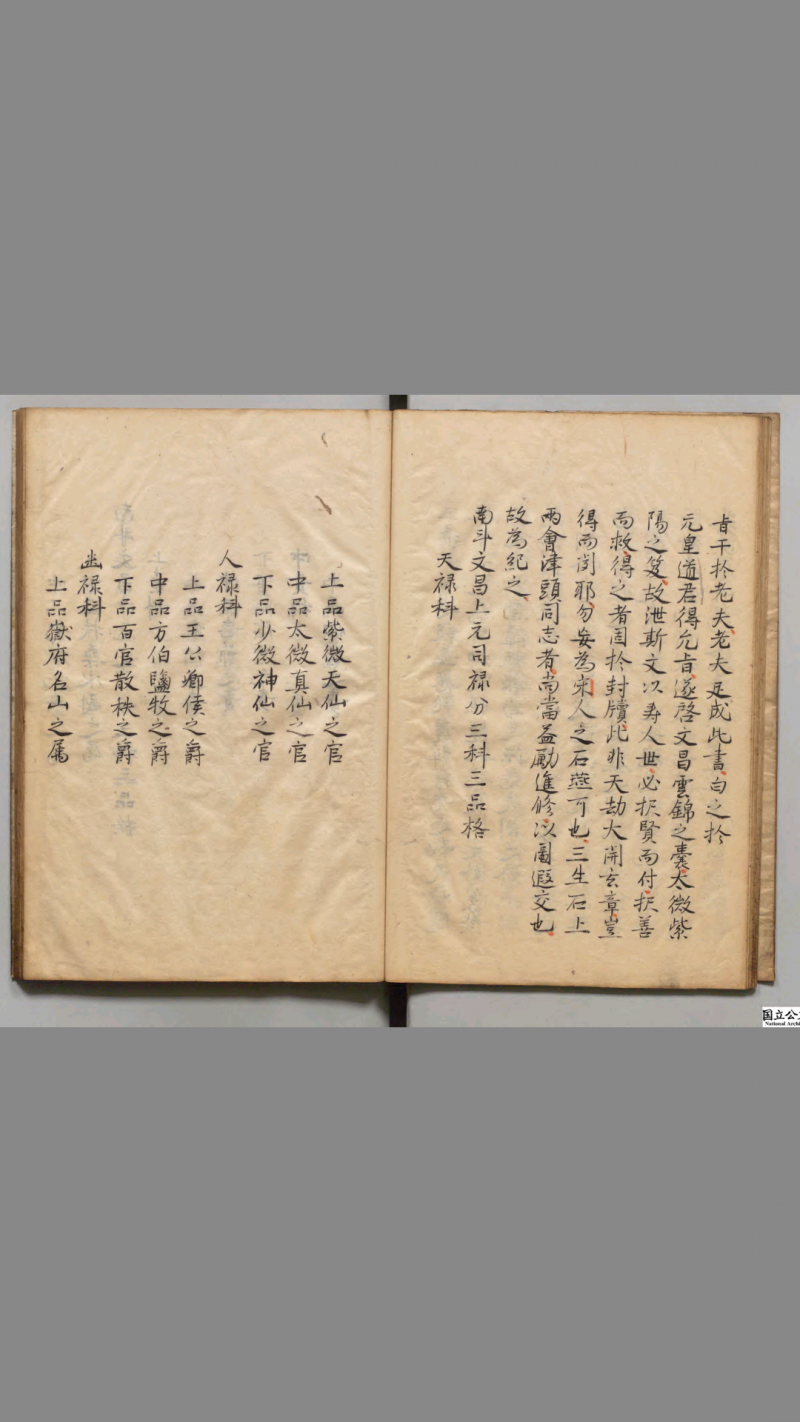 旨干扵老夫老夫足成此書白之扵
元皇道君得允旨遂啓文昌雲錦之囊太微紫
陽之笈故泄斯文以寿人世必択賢而付択善
而救得之者固扵封牘此非天劫大開玄章豈
得而閱耶勿妄為宋人之石燕可也三生石上
兩會津頭同志者尚當益勵進修以啚遐交也
故為紀之
南斗文昌上元司禄分三科三品格
天禄科
上品紫微天仙之官
中品太微真仙之官
下品少微神仙之官
人禄科
上品王公卿侯之爵
中品方伯監牧之爵
下品百官散秩之爵
幽禄科
上品嶽府名山之属
国立公
National Archi